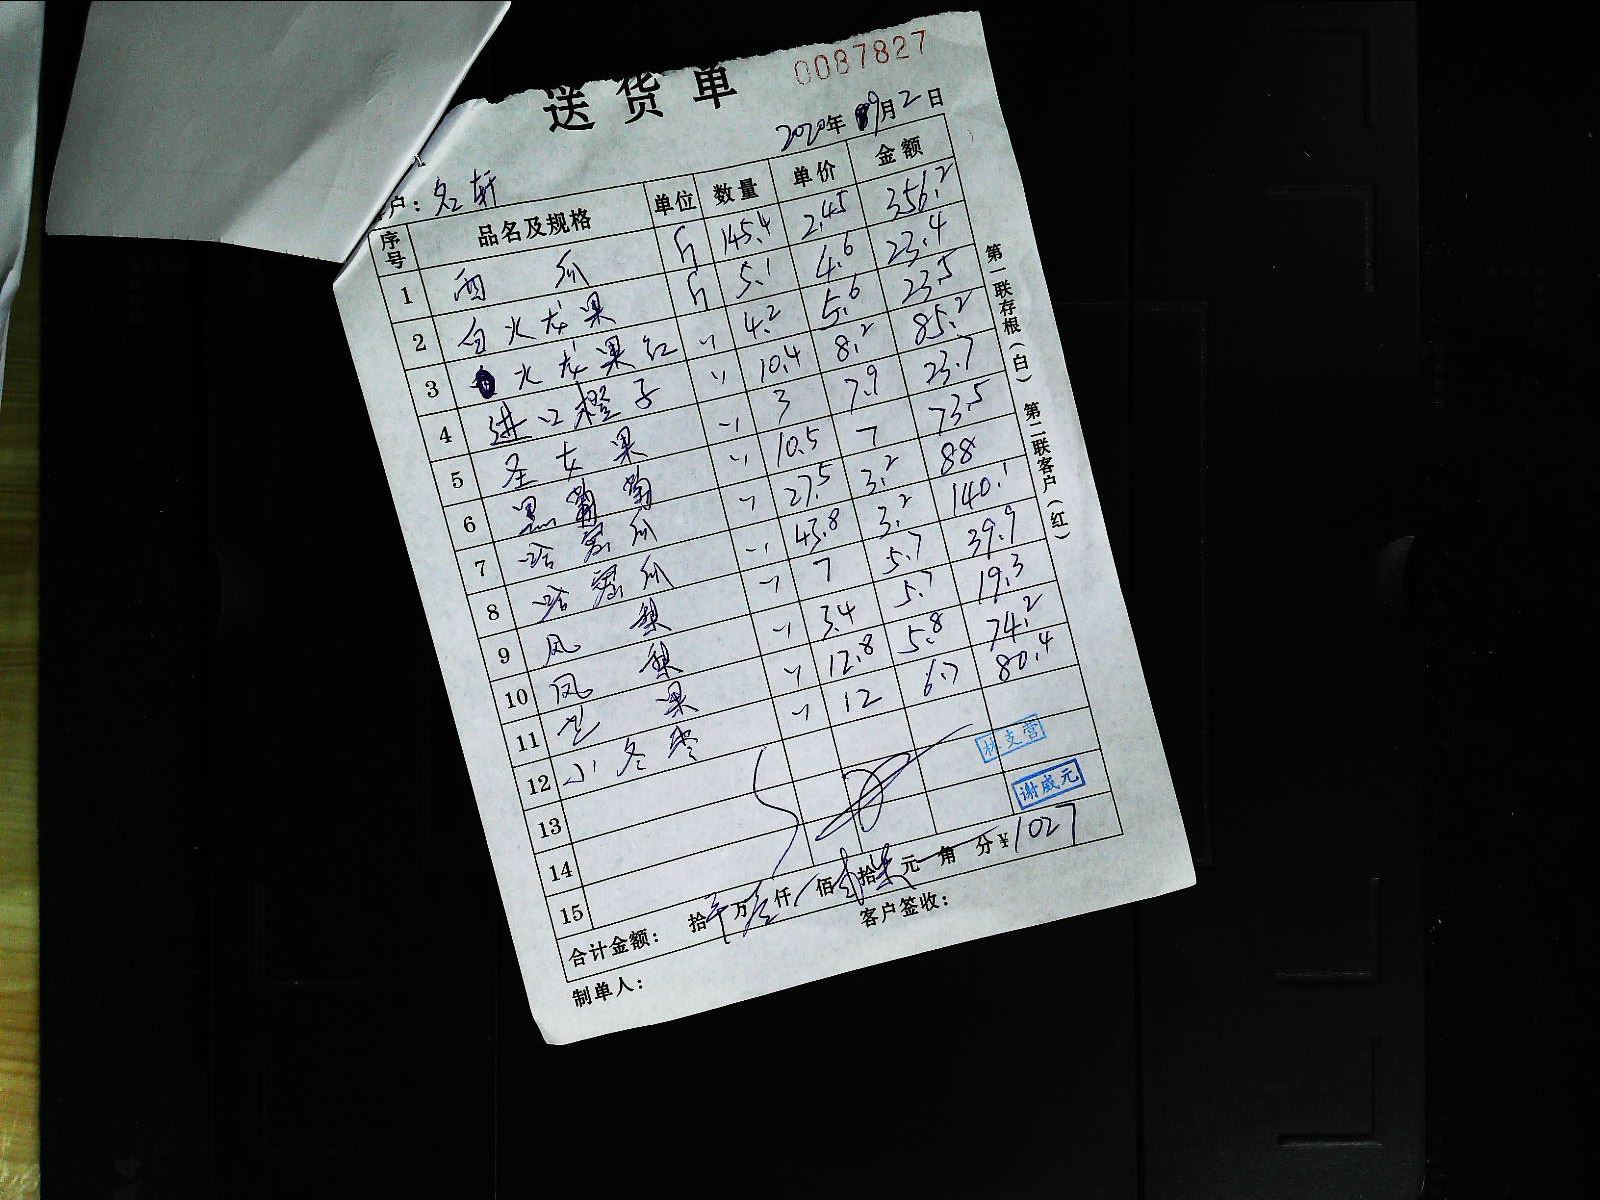 送货单 0087827
2020年9月2日
户：名轩
序号 品名及规格 单位 数量 单价 金额
1 西瓜 斤 145.4 2.45 356.2
2 白火龙果 斤 5.1 4.6 23.4
3 火龙果红 〃 4.2 5.6 23.5
4 进口橙子 〃 10.4 8.2 85.2
5 圣女果 〃 3 7.9 23.7
6 黑葡萄 〃 10.5 7 73.5
7 哈密瓜 〃 27.5 3.2 88
8 哈密瓜 〃 43.8 3.2 140.1
9 凤梨 〃 7 5.7 39.9
10 凤梨 〃 3.4 5.7 19.3
11 芒果 〃 12.8 5.8 74.2
12 小冬枣 〃 12 6.7 80.4
13
14
15
林支营
谢威元
合计金额： 拾 万 仟 佰 拾 元 角 分 ¥1027
制单人： 客户签收：
第一联存根（白） 第二联客户（红）